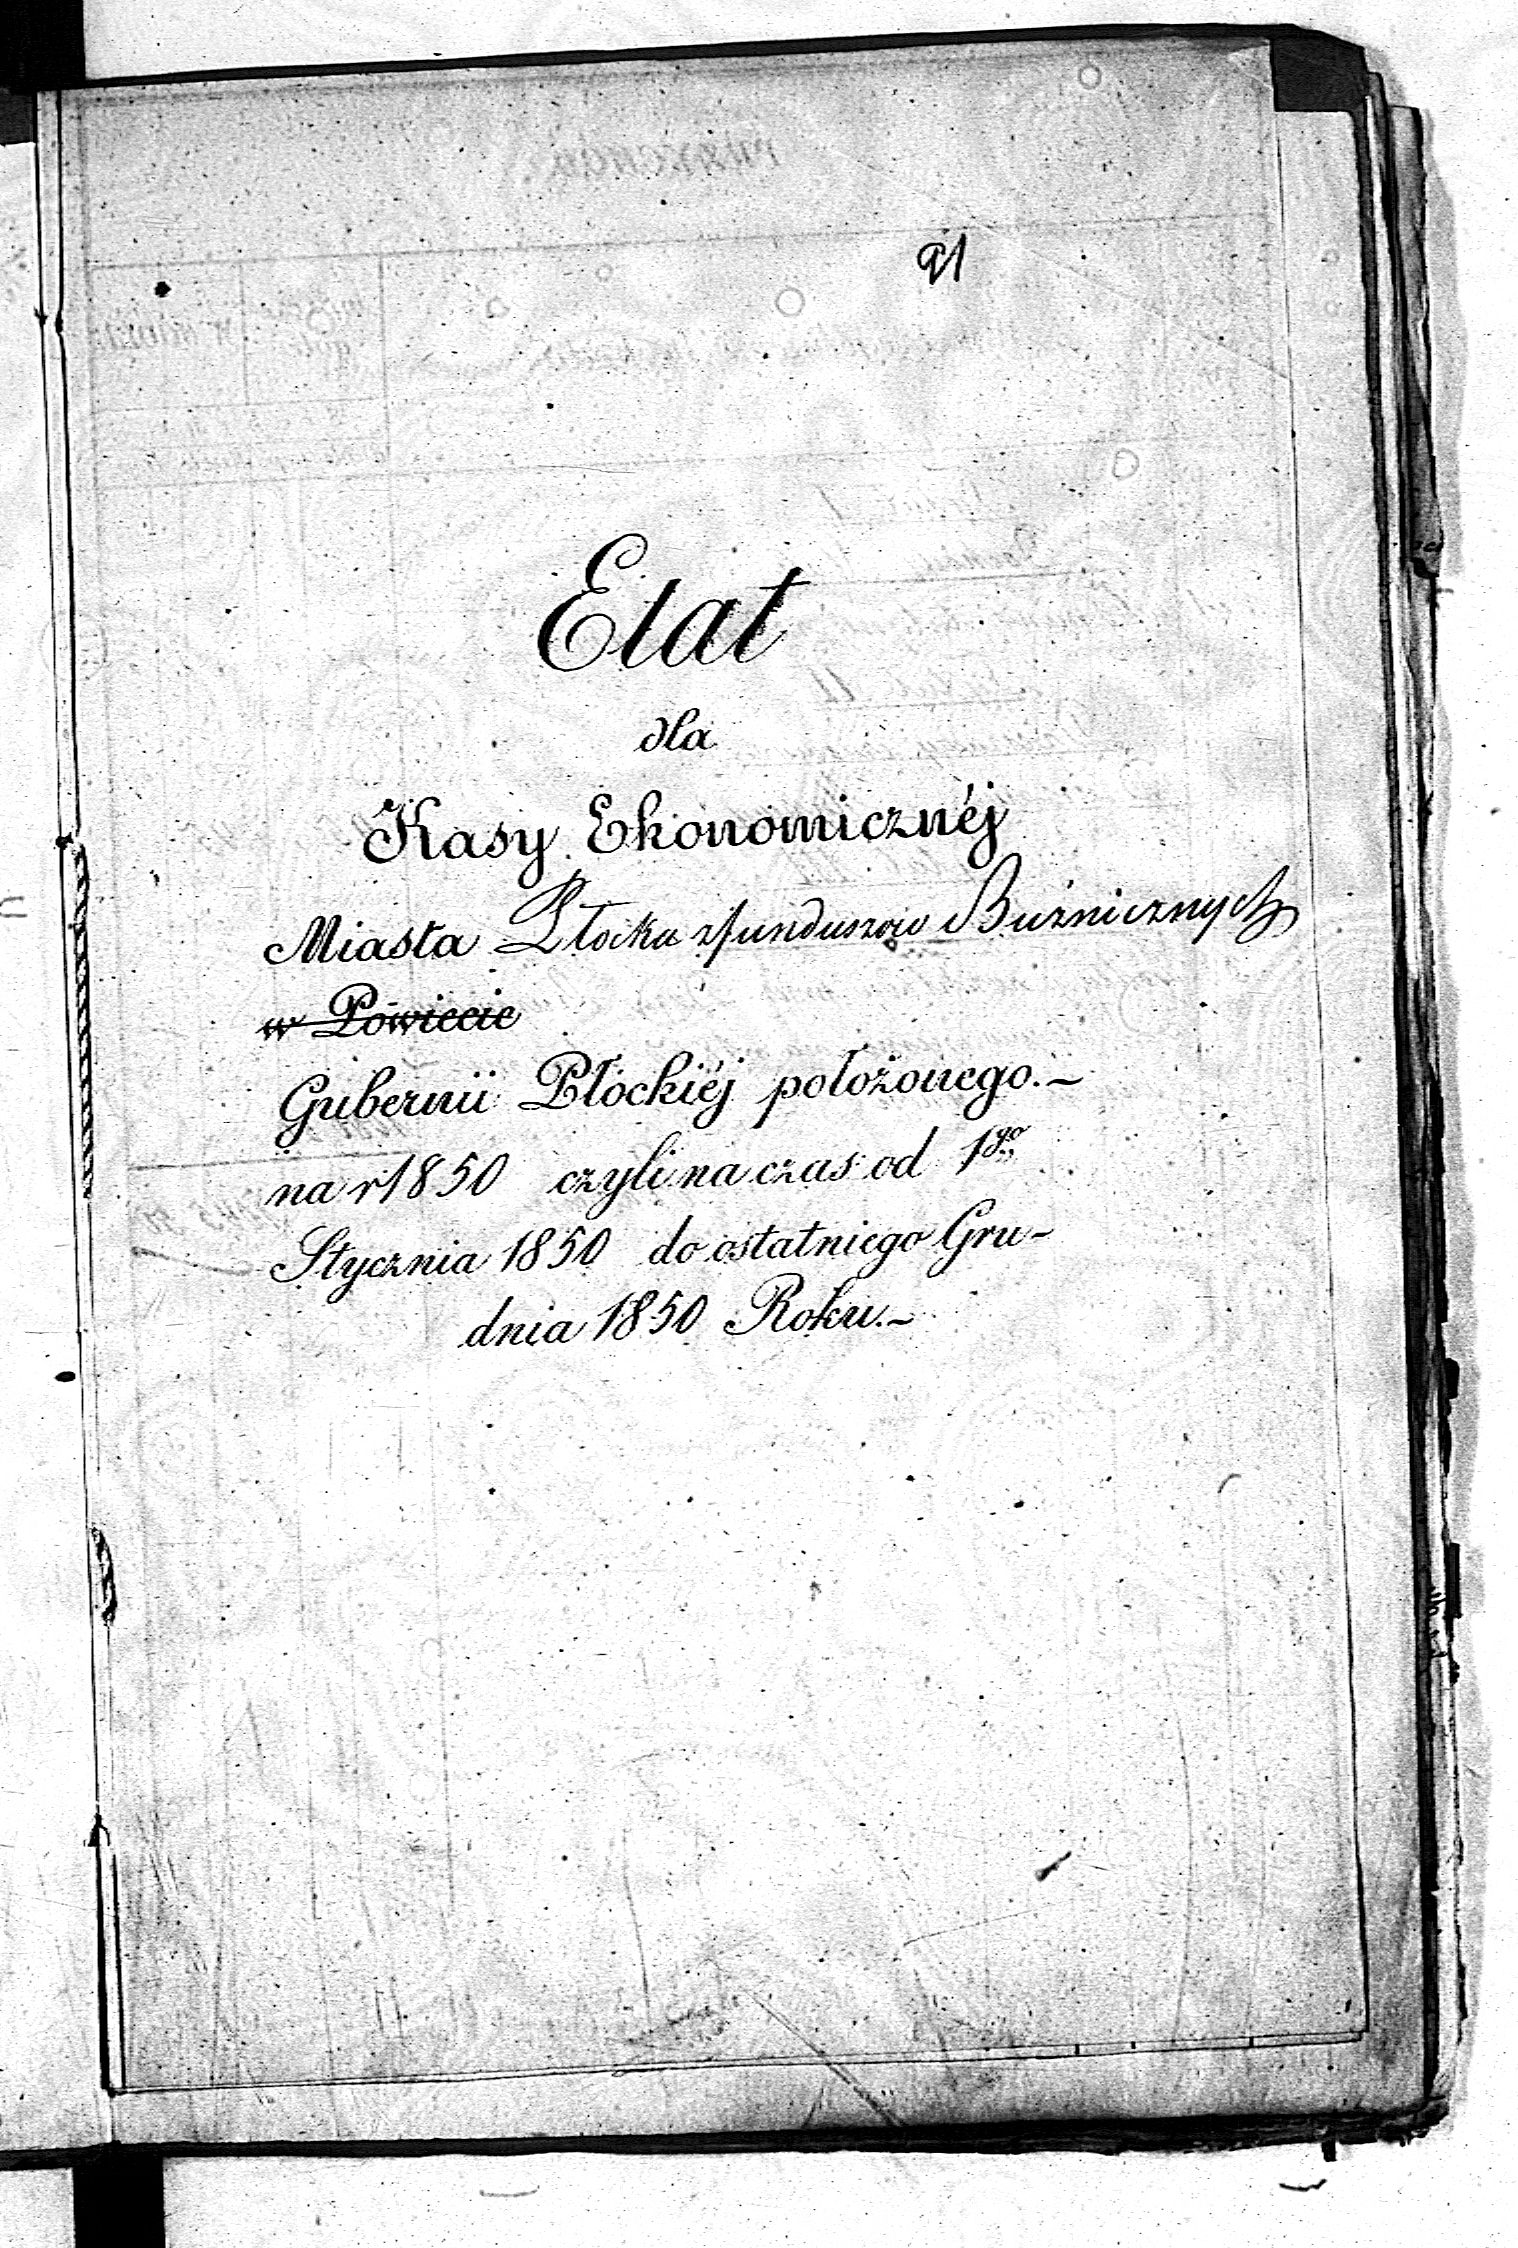 91
Etat
dla
Kasy Ekonomicznéj
Miasta Płocka z funduszów Buźnicznych
w Powiecie
Gubernii Płockiéj położonego.~
na r 1850 czyli na czas od 1go
Stycznia 1850 do ostatniego Gru-
dnia 1850 Roku.~